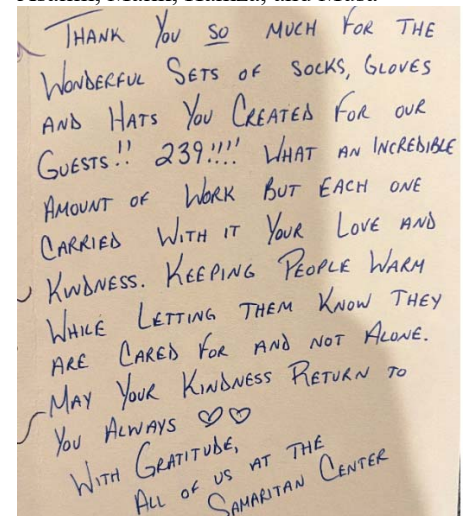 THANK YOU SO MUCH FOR THE
WONDERFUL SETS OF SOCKS, GLOVES
AND HATS YOU CREATED FOR OUR
GUESTS!! 239!!!! WHAT AN INCREDIBLE
AMOUNT OF WORK BUT EACH ONE
CARRIED WITH IT YOUR LOVE AND
KINDNESS. KEEPING PEOPLE WARM
WHILE LETTING THEM KNOW THEY
ARE CARED FOR AND NOT ALONE.
MAY YOUR KINDNESS RETURN TO
YOU ALWAYS ♡♡
WITH GRATITUDE,
ALL OF US AT THE
SAMARITAN CENTER